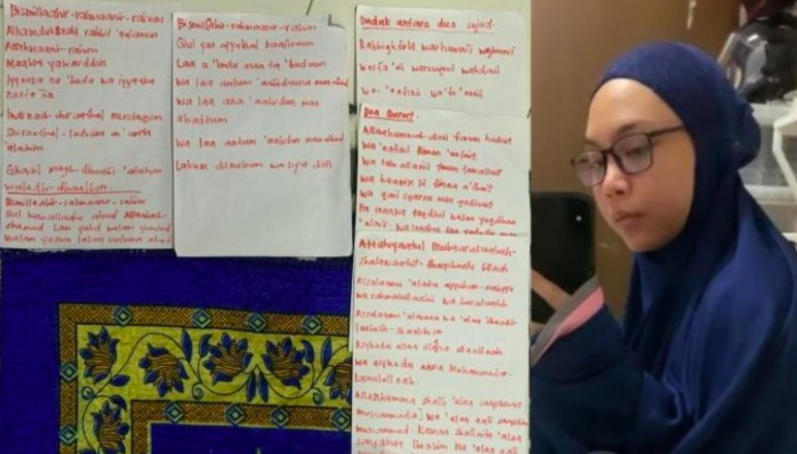 Bismillaahir-rahmaanir-rahim
Alhamdulillaahi rabbil 'aalamin
Arrahmaanir-rahim
Maaliki yawmiddin
Iyyaaka na 'budu wa iyyaaka
nasta'iin
Ihdinash-shiraathal mustaqim
Shiraathal-ladzina an'amta
'alaihim
Ghairil magh-dhuubi 'alaihim
waladh-dhaallim.
Bismillaahir-rahmaanir-rahim
Qul huwallaahu ahad Allaahush-
shamad Lam yalid walam yuulad
walam yakun lahuu kufuwan ahad
Bismillahir-rahmaanir-rahim
Qul yaa ayyuhal kaafiruun
Laa a 'budu maa ta 'buduun
Wa laa antum 'aabiduuna maa
Wa laa ana 'aabidun maa
abattum
Wa laa antum 'aabidun maa
Lakum diinukum wa liya din
Duduk antara dua sujud.
Rabbighfirli warhamni wajburni
Warfa'ni warzuqni wahdini
Wa-'aafini wa'fu 'anii
Doa Qunut.
Allaahummah-dinii fiman hadait
Wa 'aafinii fiiman 'aafait.
Wa tawallanii fiman tawallait
Wa baariklii fiimaa a'thait
Wa qinii syarra maa qadhait
Fa innaka taqdhii walaa yuqdhaa
'alaik
Attahiyyaatul Mubaarakaatush-
shalawaatut- thayyibaatu lillaah
Assalaamu 'alaika ayyuhan-nabiyyu
wa rahmatullaahi wa barakaatuh
Assalaamu 'alainaa wa 'alaa
Asyhadu allaa ilaaha illallaah
wa asyhadu anna Muhammadar-
Rasulullaah.
Allaahumma shalli 'alaa
muhammad wa 'alaa aali
muhammad. Kamaa shallaita 'alaa
Ibrahim wa 'alaa aali